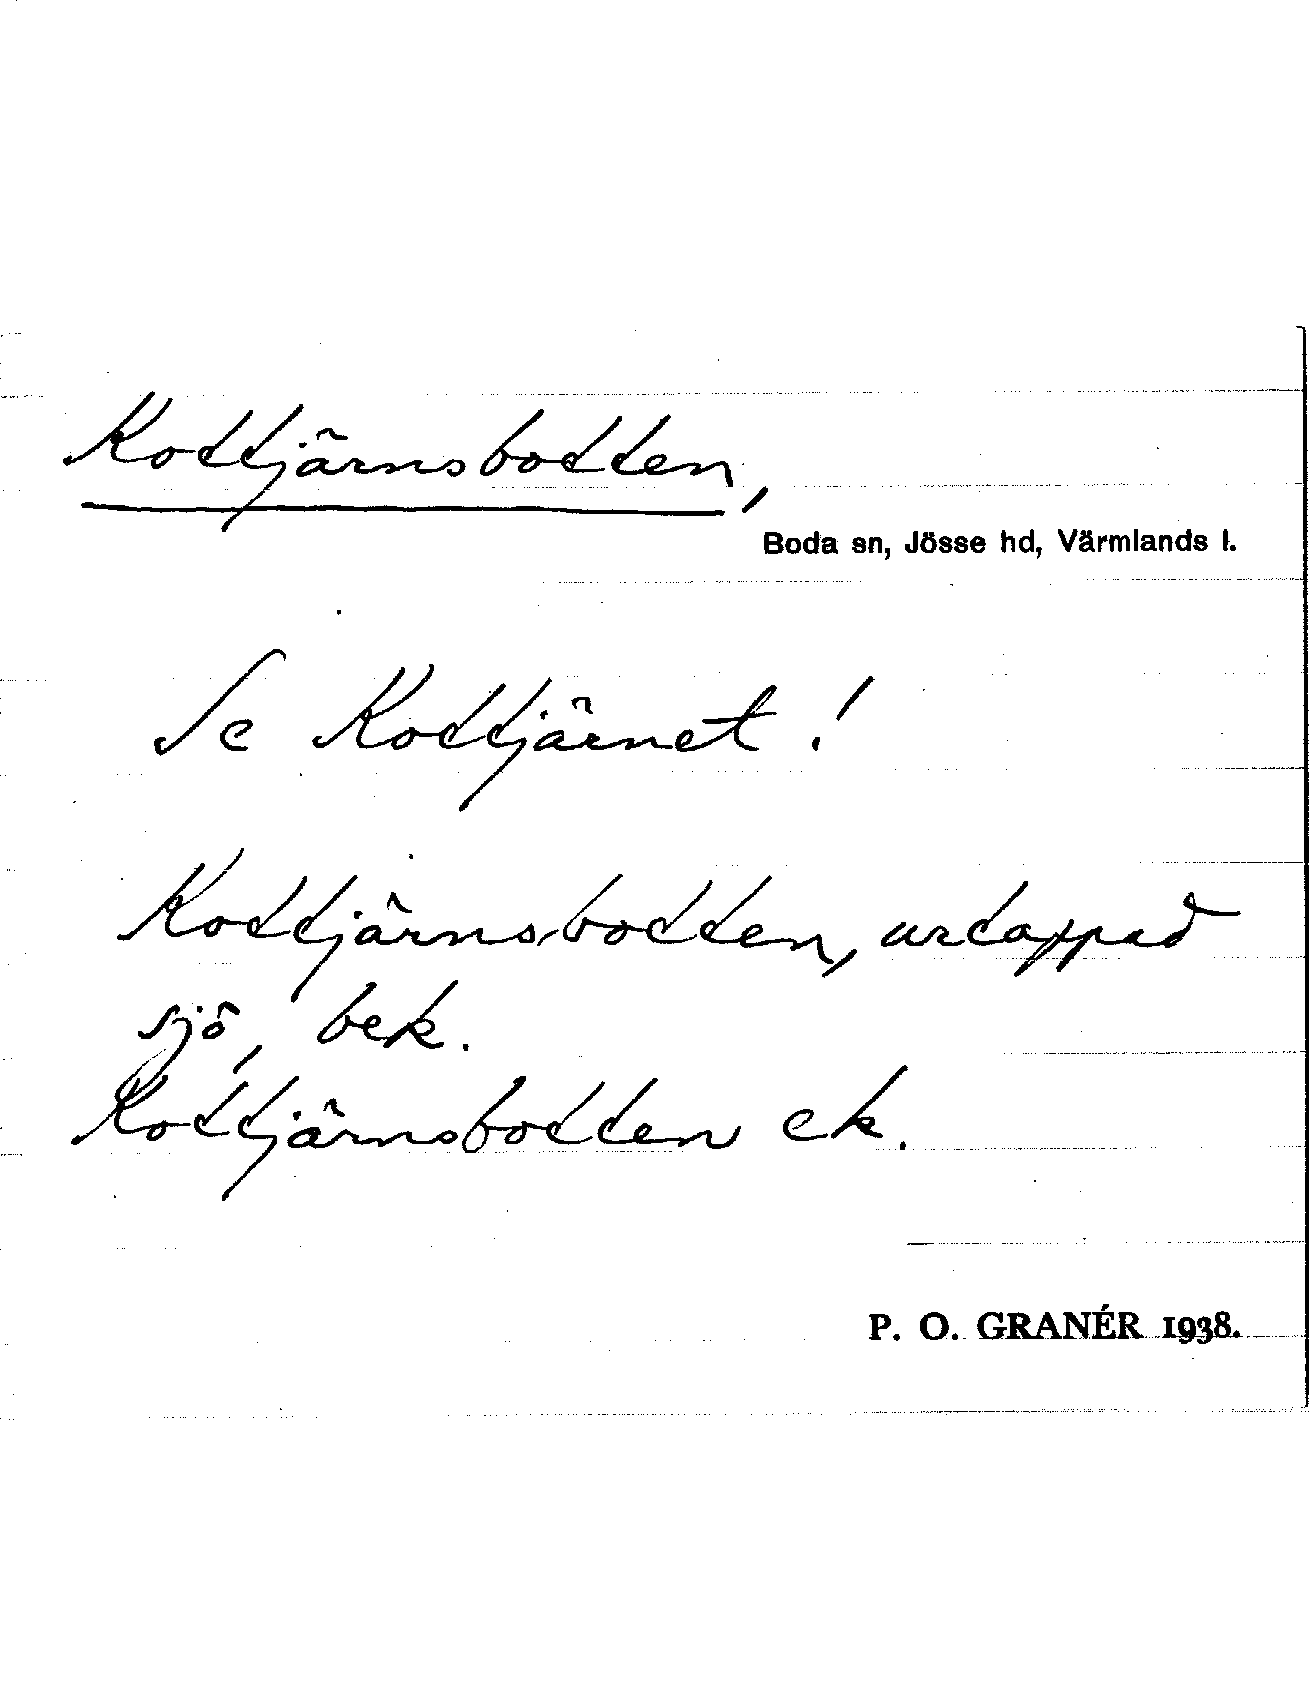 Kottjärnsbotten,
Boda sn, Jösse hd, Värmlands l.
Se Kottjärnet!
Kottjärnsbotten, urtappad
sjö, bek.
Kottjärnsbotten ek.
P. O. GRANÉR 1938.